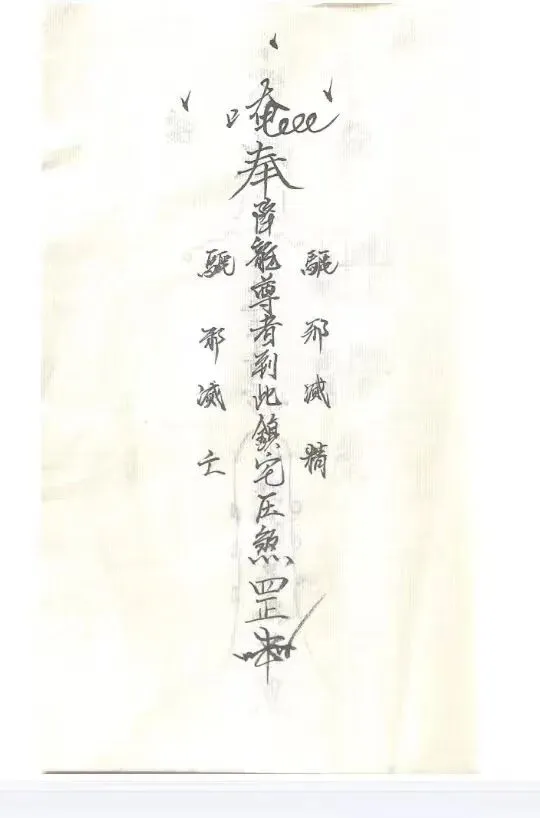 驅邪滅精
唵奉降龍尊者到此鎮宅压煞罡
驅邪滅亡